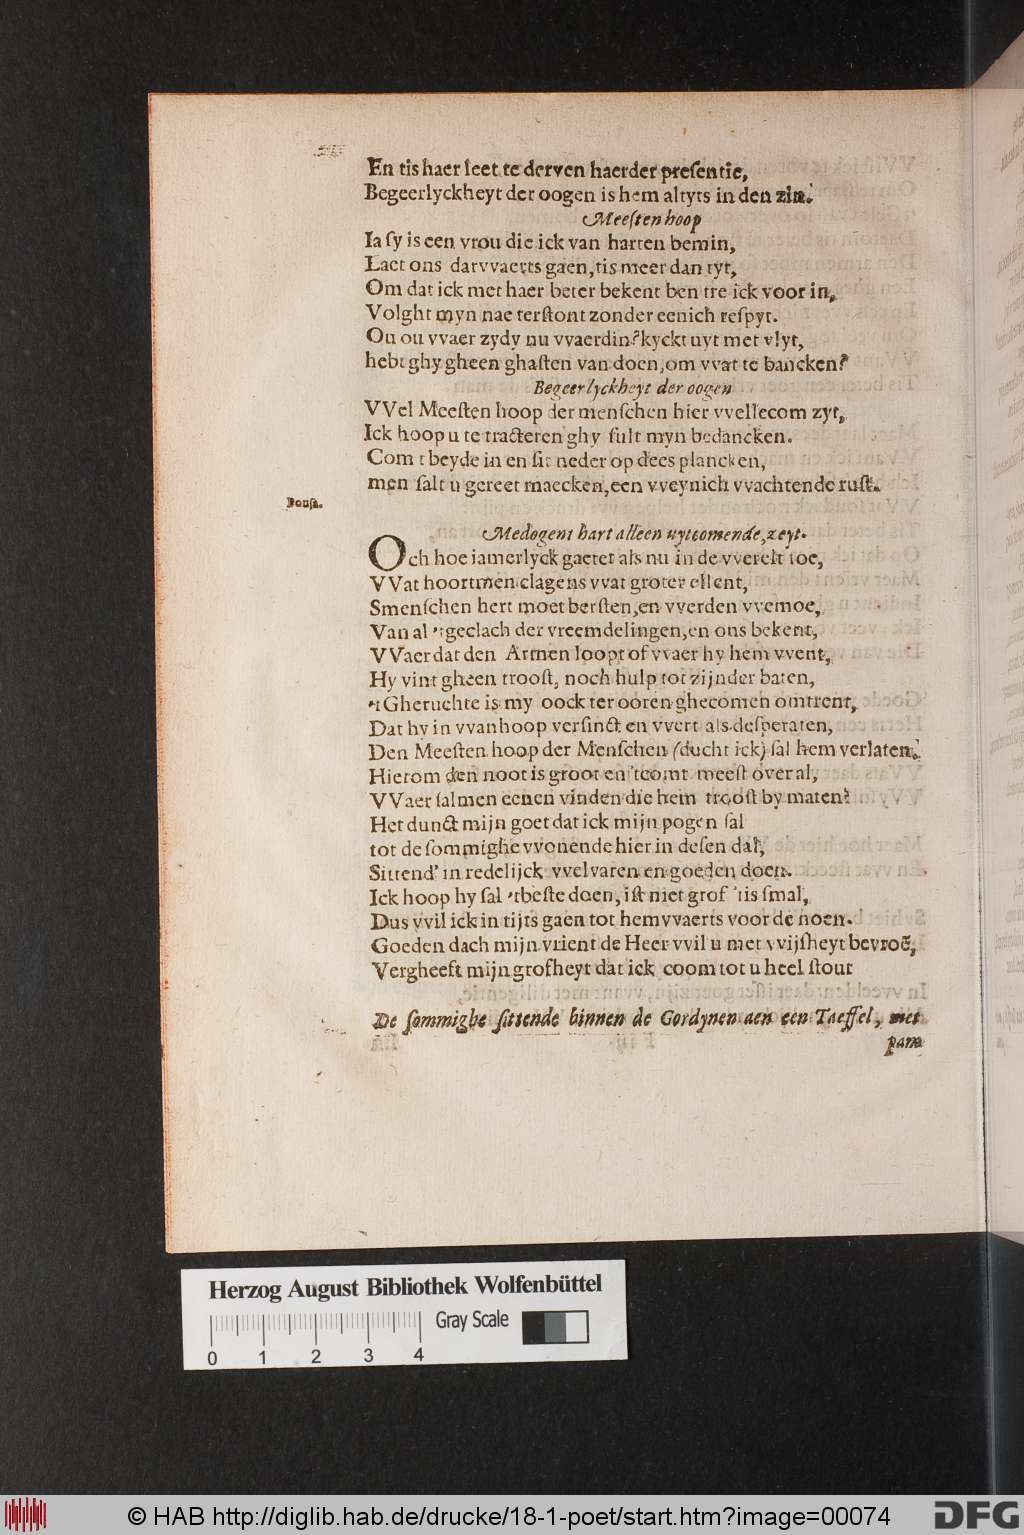 En tis haer leet te derven haerder preſentie,
Begeerlyckheyt der oogen is hem altyts in den zin.
Meeſten hoop
Ia ſy is een vrou die ick van harten bemin,
Laet ons darvvaerts gaen, tis meer dan tyt,
Om dat ick met haer beter bekent ben tre ick voor in,
Volght myn nae terſtont zonder eenich reſpyt.
Ou ou vvaer zydy nu vvaerdin? kyckt uyt met vlyt,
hebt ghy gheen ghaſten van doen, om vvat te bancken?
Begeerlyckheyt der oogen
VVel Meeſten hoop der menſchen hier vvellecom zyt,
Ick hoop u te tracteren ghy ſult myn bedancken.
Com t beyde in en ſit neder op dees plancken,
men ſalt u gereet maecken, een vveynich vvachtende ruſt.
Pouſa.
Medogent hart alleen uytcomende, zeyt.
Och hoe iamerlyck gaetet als nu in de vverelt toe,
VVat hoortmen clagens vvat groter ellent,
Smenſchen hert moet berſten, en vverden vvemoe,
Van al 'tgeclach der vreemdelingen, en ons bekent,
VVaer dat den Armen loopt of vvaer hy hem vvent,
Hy vint gheen trooſt, noch hulp tot zijnder baten,
'tGheruchte is my oock ter ooren ghecomen omtrent,
Dat hy in vvanhoop verſinct en vvert als deſperaten,
Den Meeſten hoop der Menſchen (ducht ick) ſal hem verlaten.
Hierom den noot is groot en 'tcomt meeſt over al,
VVaer ſalmen eenen vinden die hem trooſt by maten?
Het dunct mijn goet dat ick mijn pogen ſal
tot de ſommighe vvonende hier in deſen dal,
Sittend' in redelijck vvelvaren en goeden doen.
Ick hoop hy ſal 'tbeſte doen, iſt niet grof 'tis ſmal,
Dus vvil ick in tijts gaen tot hemvvaerts voor de noen.
Goeden dach mijn vrient de Heer vvil u met vvijſheyt bevroē,
Vergheeft mijn grofheyt dat ick coom tot u heel ſtout
De ſommighe ſittende binnen de Gordynen aen een Taeffel, met
pam
Herzog August Bibliothek Wolfenbüttel
Gray Scale
0 1 2 3 4
© HAB http://diglib.hab.de/drucke/18-1-poet/start.htm?image=00074
DFG